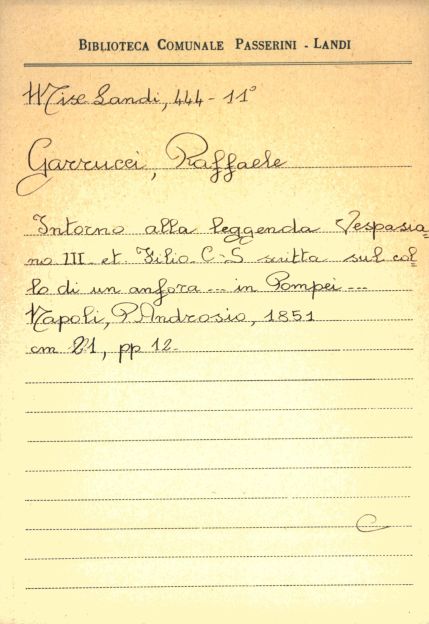 BIBLIOTECA COMUNALE PASSERINI - LANDI
Misc Landi, 444 - 11°
Garrucci, Raffaele
Intorno alla leggenda Vespasia=
no III et Filio C-S scritta sul col=
lo di un anfora ... in Pompei ...
Napoli, P. Androsio, 1851
cm 21, pp 12.
C